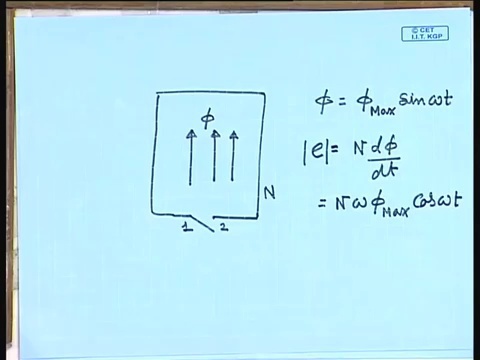 © CET
I.I.T. KGP
ϕ
N
1 2
ϕ = ϕMax sin ωt
|e| = N dϕ/dt
= N ω ϕMax Cos ωt